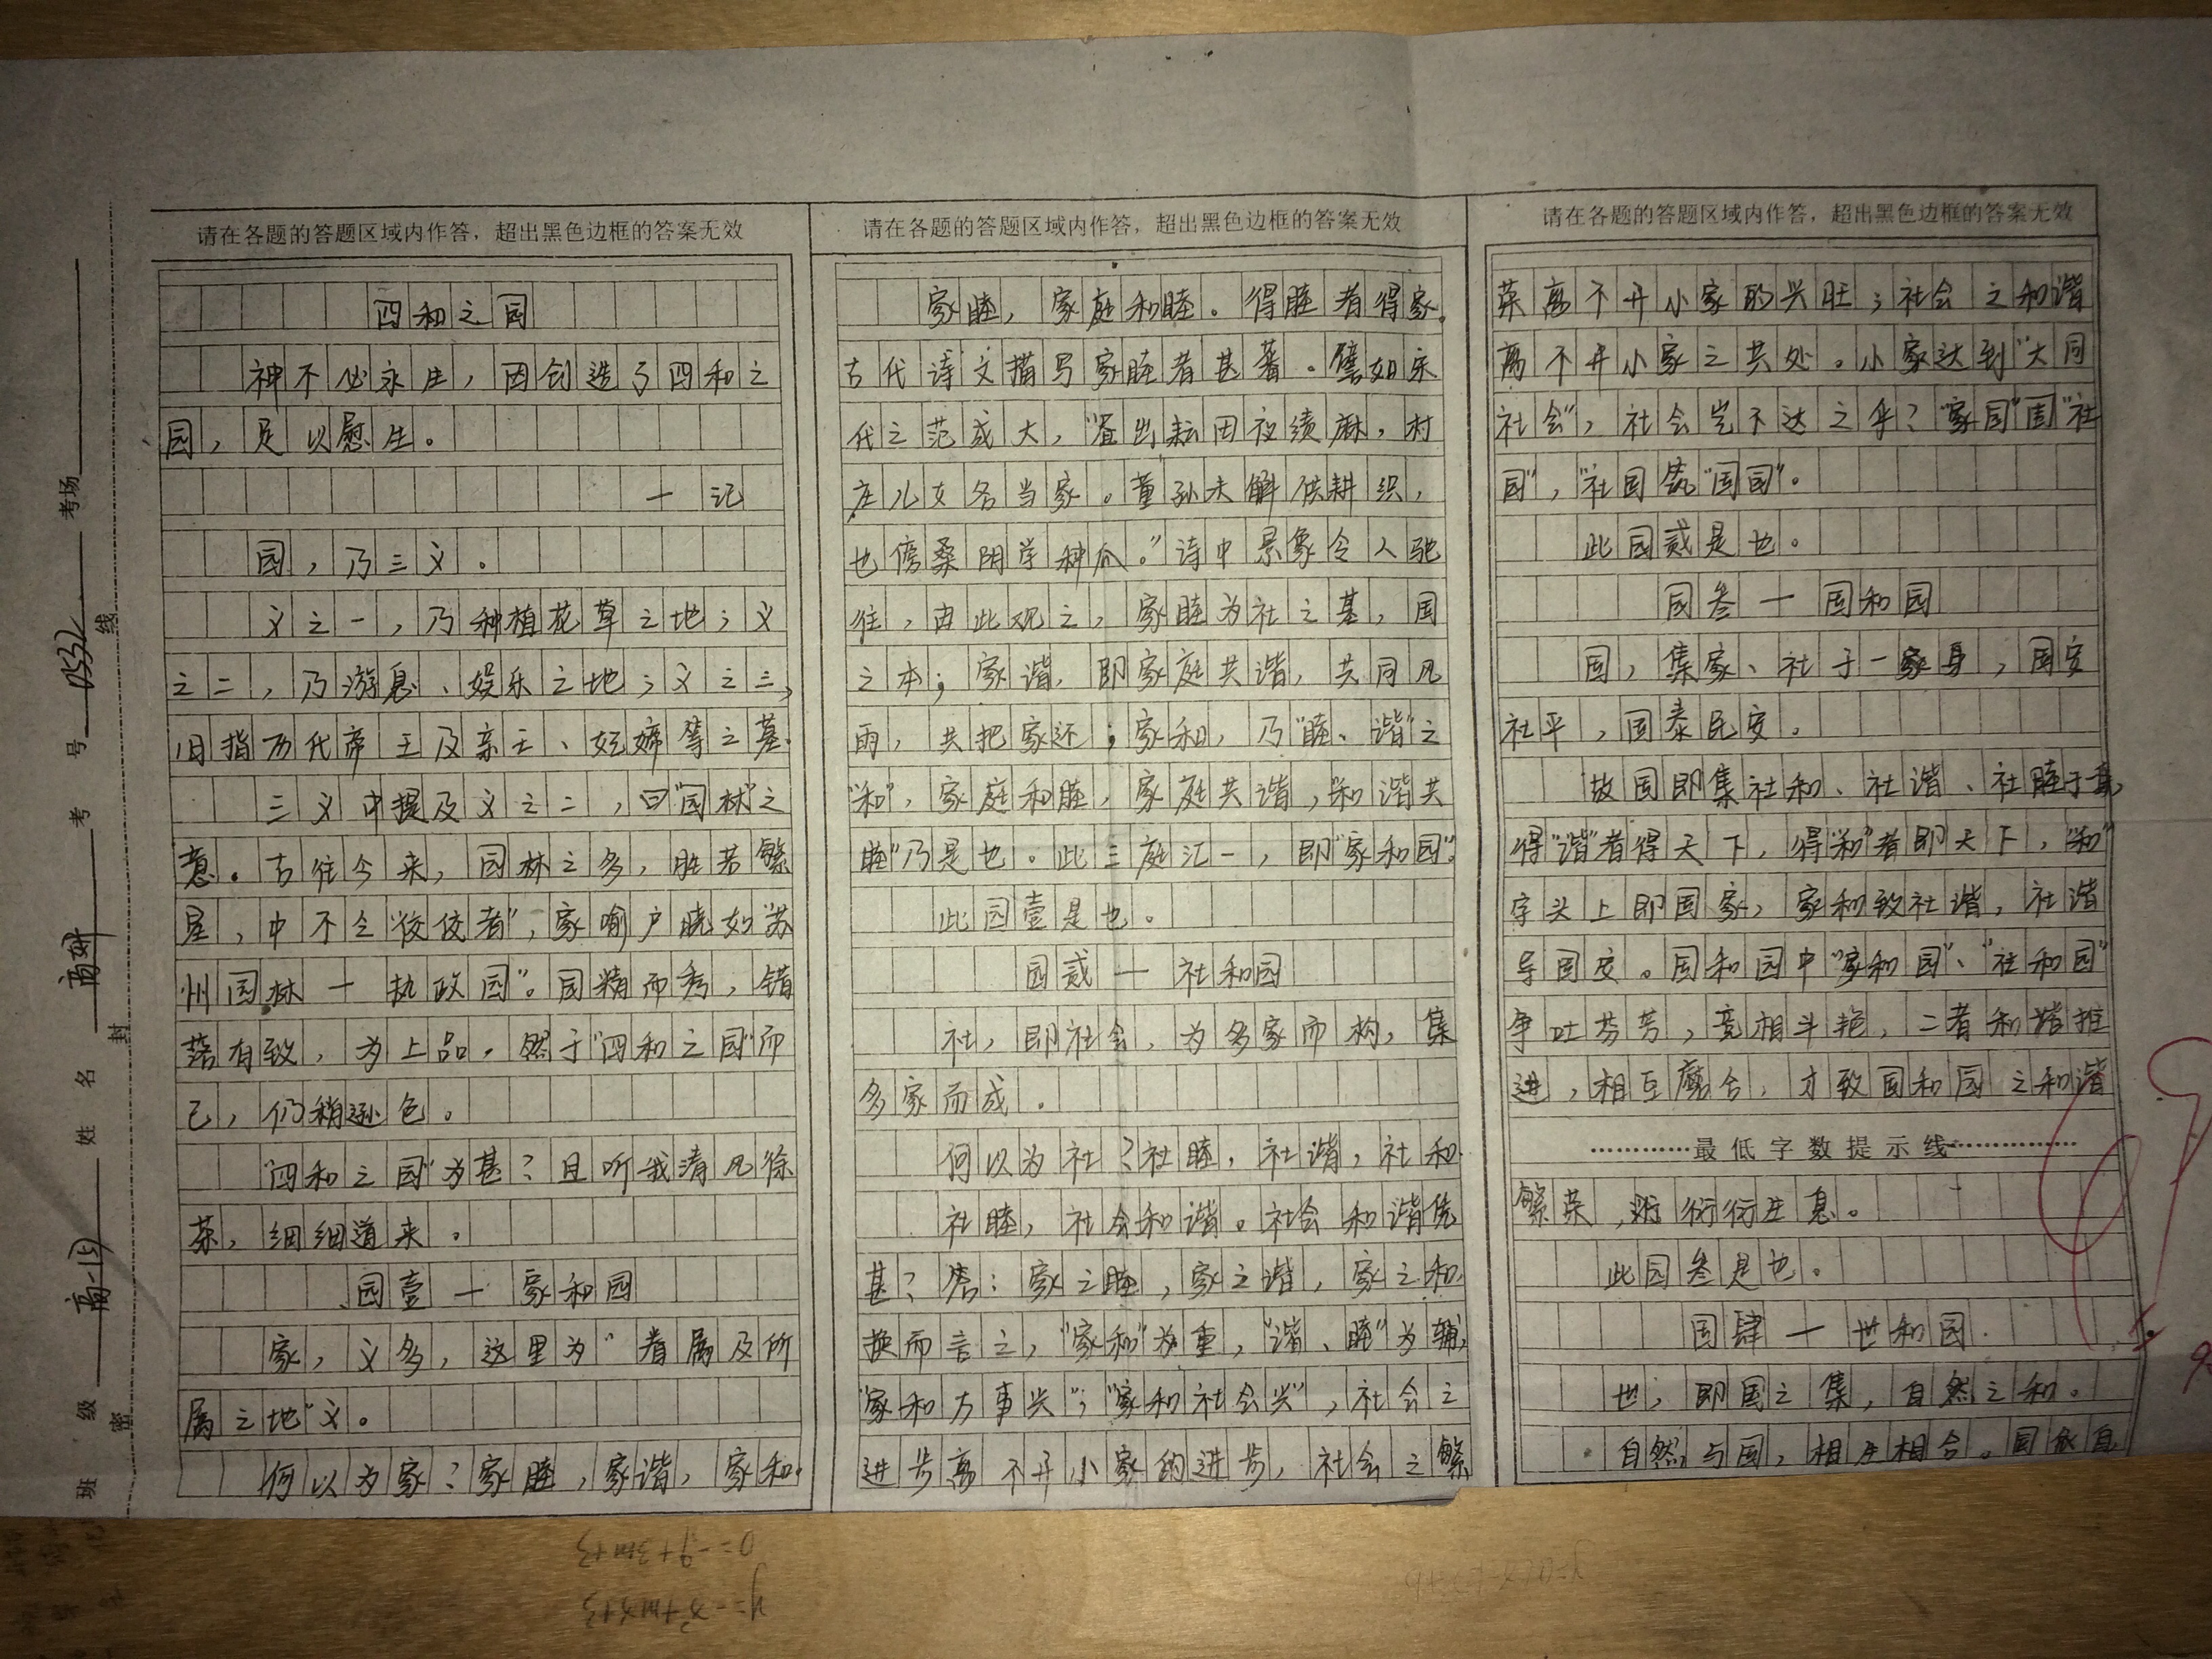 请在各题的答题区域内作答，超出黑色边框的答案无效
四和之园
神不必永生，因创造了四和之
园，足以慰生。
一记
园，乃三义。
义之一，乃种植花草之地；义
之二，乃游息、娱乐之地；义之三，
旧指历代帝王及亲王、妃嫔等之墓。
三义中提及义之二，曰"园林"之
意。古往今来，园林之多，胜若繁
星，中不乏"佼佼者"，家喻户晓如"苏
州园林一执政园"。园精而秀，错
落有致，为上品，然于"四和之园"而
已，仍稍逊色。
"四和之园"为甚？且听我清风徐
茶，细细道来。
园壹一家和园
家，义多，这里为"眷属及所
属之地"义。
何以为家？家睦，家谐，家和。
请在各题的答题区域内作答，超出黑色边框的答案无效
家睦，家庭和睦。得睦者得家。
古代诗文描写家睦者甚著。譬如宋
代之范成大，"昼出耘田夜绩麻，村
庄儿女各当家。童孙未解供耕织，
也傍桑阴学种瓜。"诗中景象令人驰
往，由此观之，家睦为社之基，国
之本；家谐，即家庭共谐，共同风
雨，共把家还；家和，乃"睦、谐"之
"和"，家庭和睦，家庭共谐，"和谐共
睦"乃是也。此三庭汇一，即"家和园"。
此园壹是也。
园贰一社和园
社，即社会，为多家而构，集
多家而成。
何以为社？社睦，社谐，社和。
社睦，社会和谐。社会和谐凭
甚？答：家之睦，家之谐，家之和。
换而言之，"家和"为重，"谐、睦"为辅，
"家和万事兴"；"家和社会兴"，社会之
进步离不开小家的进步，社会之繁
请在各题的答题区域内作答，超出黑色边框的答案无效
荣离不开小家的兴旺；社会之和谐
离不开小家之共处。小家达到"大同
社会"，社会岂不达之乎？"家园""社
园"，"社园筑"国园"。
此园贰是也。
园叁一国和园
国，集家、社于一身，国安
社平，国泰民安。
故国即集社和、社谐、社睦于
得"谐"者得天下，得"和"者即天下，"和"
字头上即国家，家和致社谐，社谐
导国安。国和园中"家和园"、"社和园"
争吐芬芳，竞相斗艳，二者和谐推
进，相互磨合，才致国和园之和谐
最低字数提示线
繁荣，衍衍生息。
此园叁是也。
园肆一世和园
世，即国之集，自然之和。
自然与国，相生相合。国
班级 高一(5)
姓名
考号 0532
考场
密
封
线
y=-x²+mx+3
0=-9+3m+3